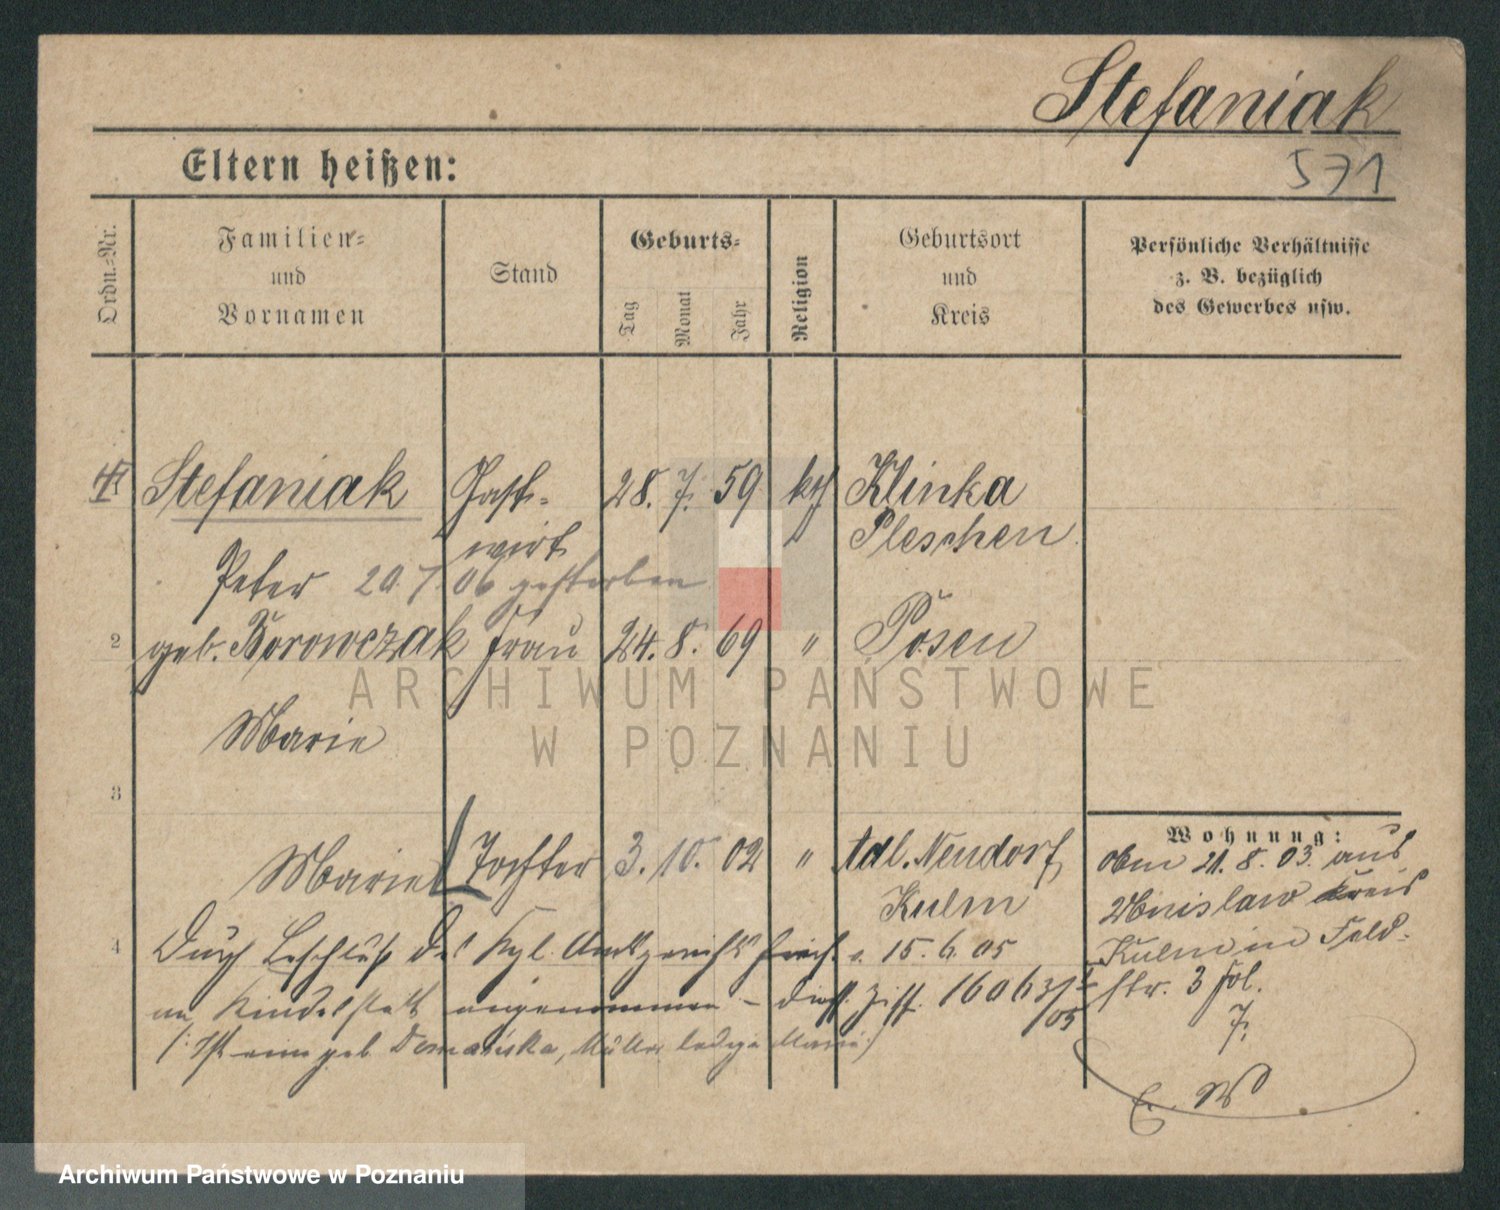 Stefaniak
571
Eltern heißen:
Ordn.-Nr.
Familien-
und
Vornamen
Stand
Geburts-
Tag
Monat
Jahr
Religion
Geburtsort
und
Kreis
Persönliche Verhältnisse
z. B. bezüglich
des Gewerbes usw.
Stefaniak Gast- 28. 7. 59 kth Klinka
wirt Pleschen
Peter 20. 7. 06 gestorben
2 geb. Borowczak Frau 24. 8. 69 " Posen
Marie
3
Marie Tochter 3. 10. 02 " Adl. Neudorf
Kulm
4 Durch Beschluß des Kgl. Amtsgerichts hier. v. 15. 6. 05
an Kindesstatt angenommen -
(: Ist eine geb. Domańska, Mutter ledige Marie :)
Wohnung:
21. 8. 03. aus
Kreis
Kulm in Feld-
str. 3 fol.
7.
E. W
ARCHIWUM PAŃSTWOWE
W POZNANIU
Archiwum Państwowe w Poznaniu